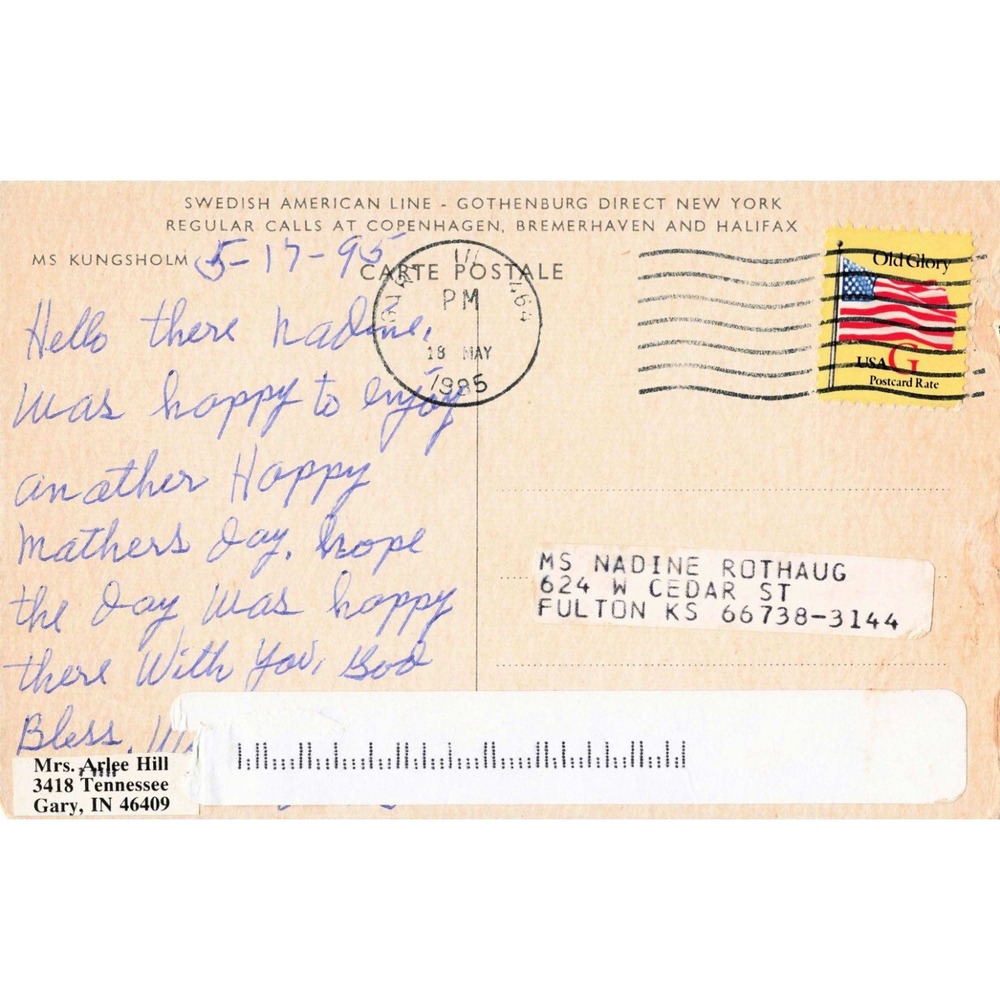 SWEDISH AMERICAN LINE - GOTHENBURG DIRECT NEW YORK
REGULAR CALLS AT COPENHAGEN, BREMERHAVEN AND HALIFAX
MS KUNGSHOLM
5-17-95
CARTE POSTALE
GARY IN 464
PM
18 MAY
1995
Old Glory
USA G
Postcard Rate
Hello there Nadine,
Was happy to enjoy
another Happy
Mathers Day, hope
the day was happy
there With You, God
Bless.
MS NADINE ROTHAUG
624 W CEDAR ST
FULTON KS 66738-3144
Mrs. Arlee Hill
3418 Tennessee
Gary, IN 46409